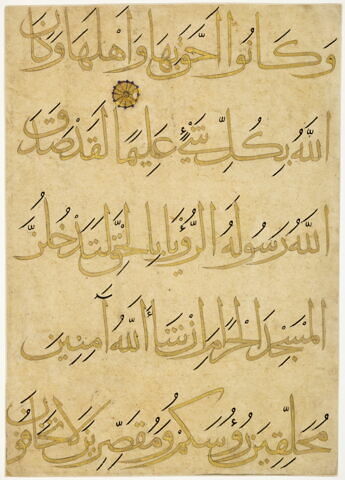 وَكَانُوا أَحَقَّ بِهَا وَأَهْلَهَا وَكَانَ
اللَّهُ بِكُلِّ شَيْءٍ عَلِيمًا لَقَدْ صَدَقَ
اللَّهُ رَسُولَهُ الرُّؤْيَا بِالْحَقِّ لَتَدْخُلُنَّ
الْمَسْجِدَ الْحَرَامَ إِنْ شَاءَ اللَّهُ آمِنِينَ
مُحَلِّقِينَ رُؤُسَكُمْ وَمُقَصِّرِينَ لَا تَخَافُونَ